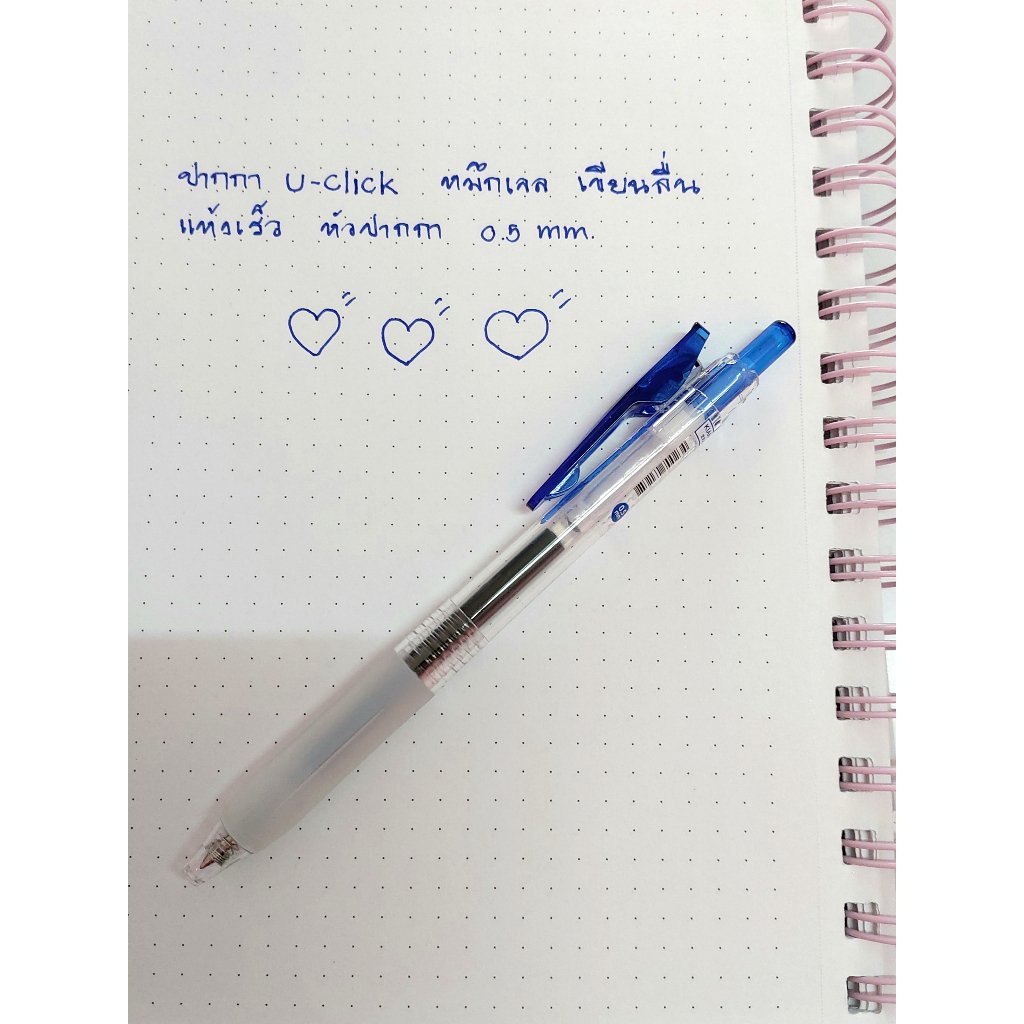 ปากกา U-Click หมึกเจล เขียนลื่น
แห้งเร็ว หัวปากกา 0.5 mm.